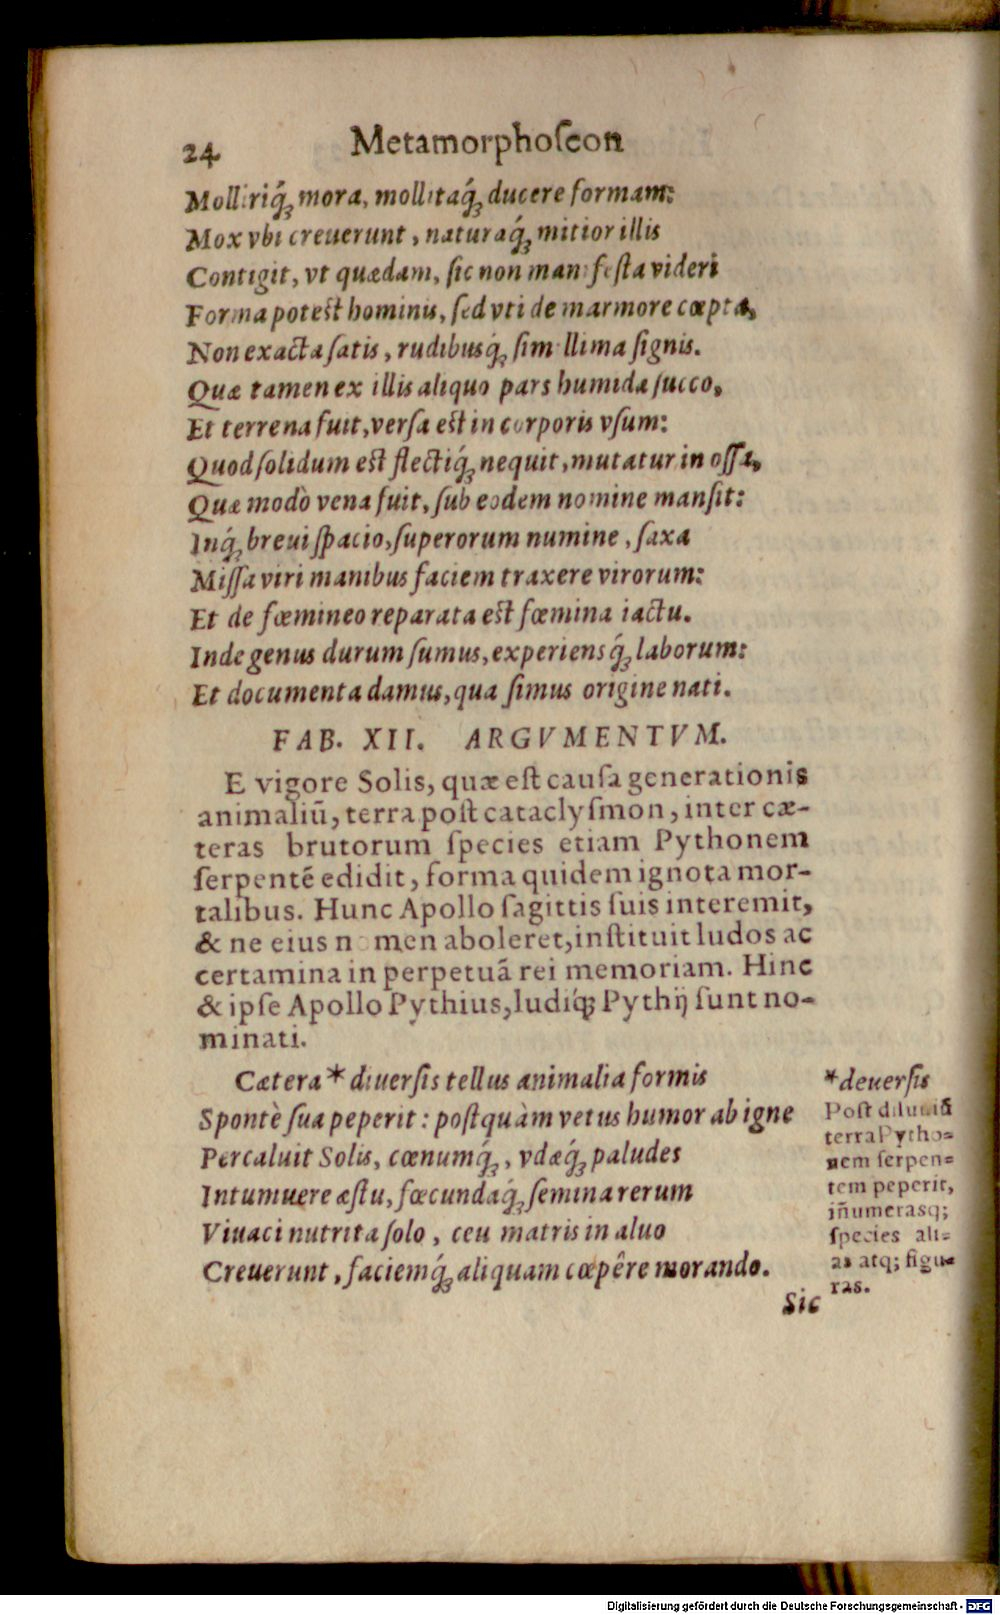 24 Metamorphoſeon
Molliriq́ꝫ mora, mollitaq́ꝫ ducere formam:
Mox vbi creuerunt, naturaq́ꝫ mitior illis
Contigit, vt quædam, ſic non manifeſta videri
Forma poteſt hominis, ſed vti de marmore cœpta,
Non exacta ſatis, rudibusq́ꝫ ſimillima ſignis.
Quæ tamen ex illis aliquo pars humida ſucco,
Et terrena fuit, verſa eſt in corporis vſum:
Quod ſolidum eſt flectiq́ꝫ nequit, mutatur in oſſa,
Quæ modò vena fuit, ſub eodem nomine manſit:
Inq́ꝫ breui ſpacio, ſuperorum numine, ſaxa
Miſſa viri manibus faciem traxere virorum:
Et de fœmineo reparata eſt fœmina iactu.
Inde genus durum ſumus, experiensq́ꝫ laborum:
Et documenta damus, qua ſimus origine nati.
FAB. XII. ARGVMENTVM.
E vigore Solis, quæ eſt cauſa generationis
animaliū, terra poſt cataclyſmon, inter cæ-
teras brutorum ſpecies etiam Pythonem
ſerpentē edidit, forma quidem ignota mor-
talibus. Hunc Apollo ſagittis ſuis interemit,
& ne eius nomen aboleret, inſtituit ludos ac
certamina in perpetuā rei memoriam. Hinc
& ipſe Apollo Pythius, ludiq́ꝫ Pythij ſunt no-
minati.
Cætera * diuerſis tellus animalia formis
Spontè ſua peperit: poſtquàm vetus humor ab igne
Percaluit Solis, cœnumq́ꝫ, vdæq́ꝫ paludes
Intumuere æſtu, fœcundaq́ꝫ ſemina rerum
Viuaci nutrita ſolo, ceu matris in aluo
Creuerunt, faciemq́ꝫ aliquam cœpêre morando.
Sic
*deuerſis
Poſt diluuiū
terra Pytho-
nem ſerpen-
tem peperit,
iñumerasq;
ſpecies ali-
as atq; figu-
ras.
Digitalisierung gefördert durch die Deutsche Forschungsgemeinschaft - DFG